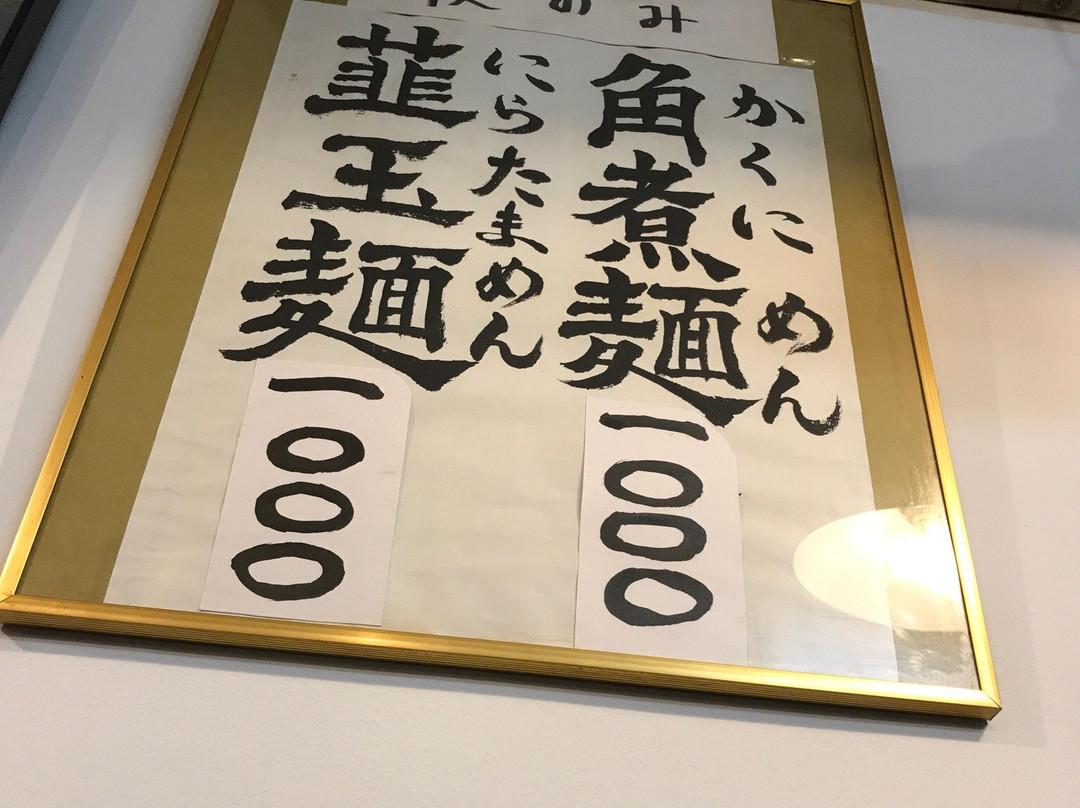 のみ
角煮麺
かくにめん
一〇〇〇
韮玉麺
にらたまめん
一〇〇〇